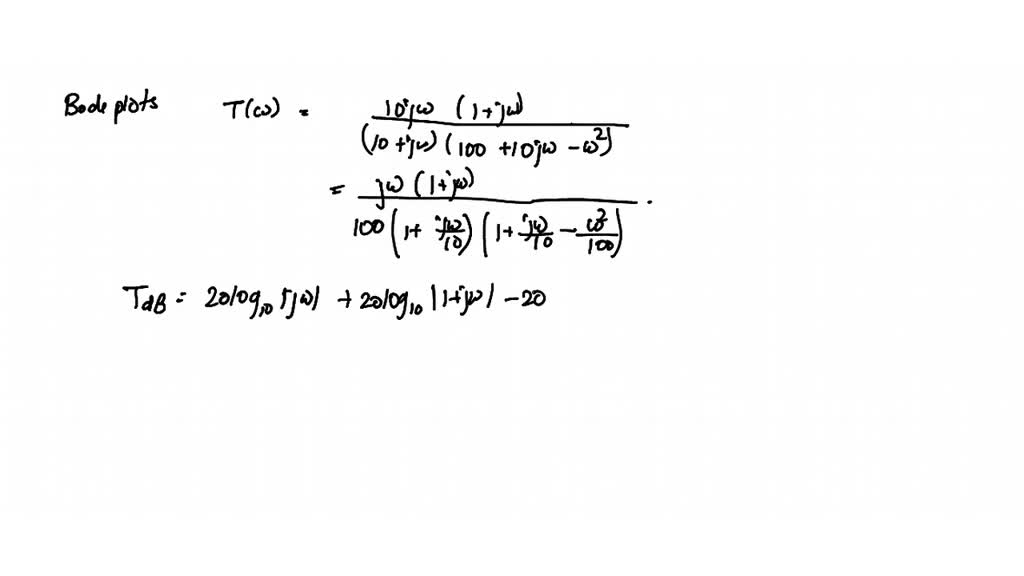 Bode plots T(ω) = 10jω (1+jω) / (10+jω)(100 +10jω −ω²)
= jω (1+jω) / 100 (1+ jω/10) (1+ jω/10 − ω²/100) .
T_dB = 20log₁₀ |jω| + 20log₁₀ |1+jω| −20